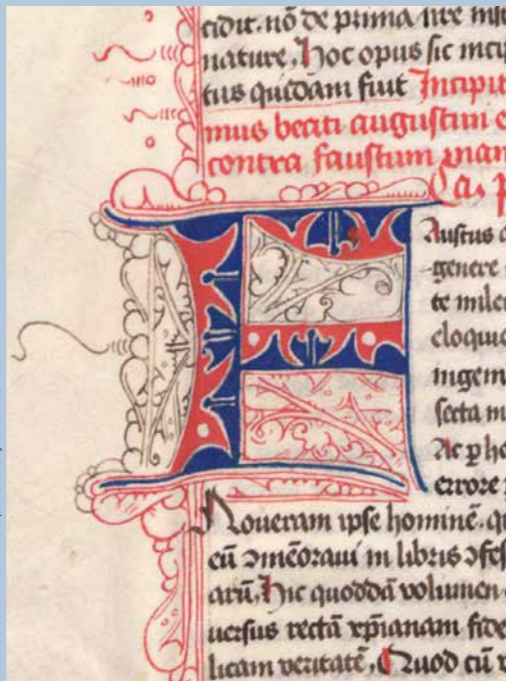 cidit. nō de prima
nature. Hoc opus sic incip
tus quidam fuit Incipit
mus beati augustini
contra faustum man
F Austus
genere
te mile
eloquio
ingeni
secta m
Ac p
errore
Noueram ipse hominē. q
cū ɔmēoraui in libris ɔfes
arū. Hic quoddā volumen
uersus rectā xp̄ianam fide
licam veritatē. Quod cū